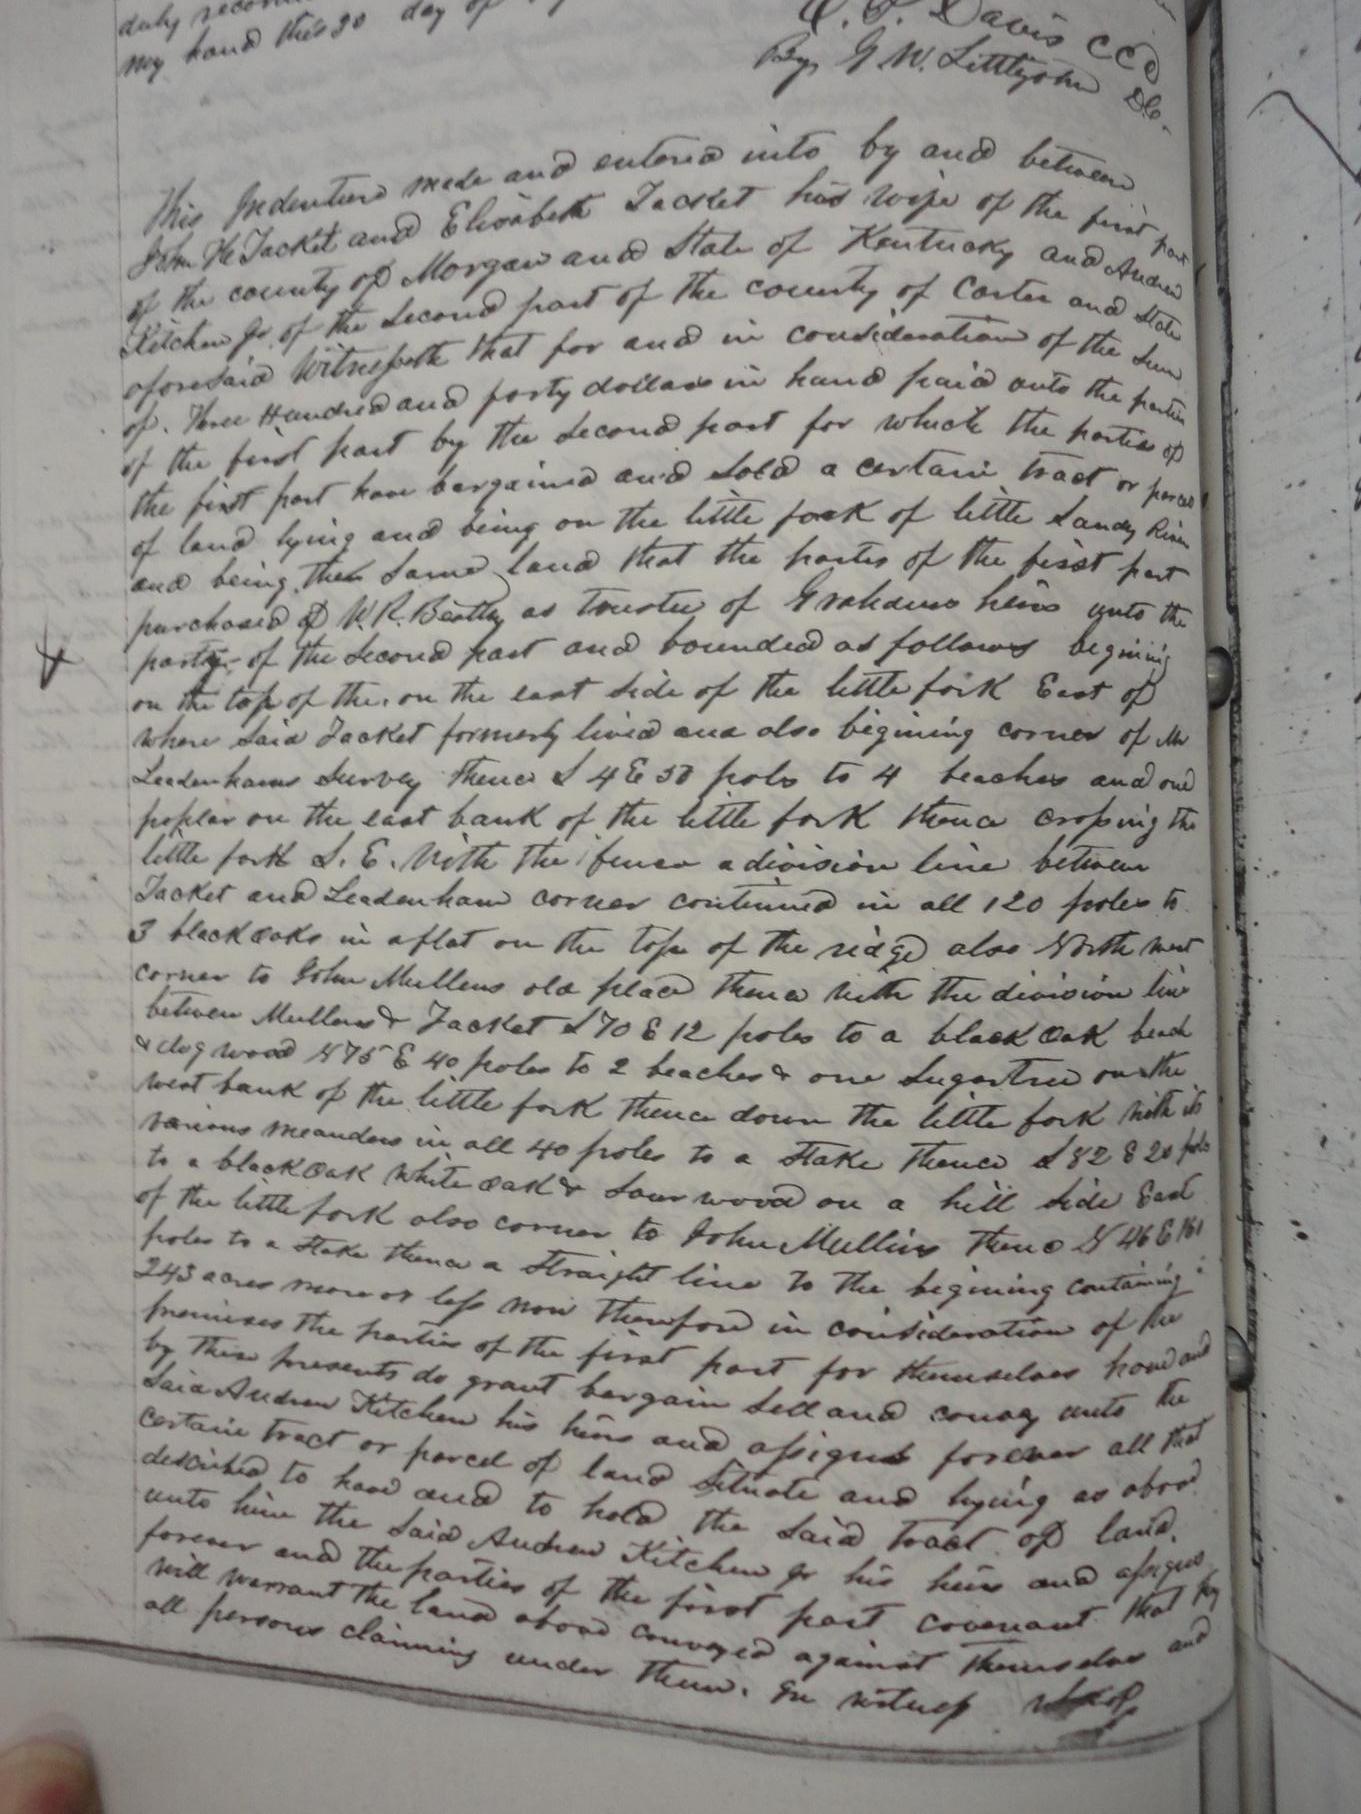 duly
my hand this 20 day of
C. P. Davis CCC
By G. W. Littlejohn DC.
This Indenture made and entered into by and between
John H Jacket and Elisabeth Jacket his wife of the first part
of the county of Morgan and State of Kentucky and Andrew
Kitchen Jr. of the Second part of the county of Carter and State
aforesaid Witnesseth that for and in consideration of the Sum
of. Three Hundred and forty dollars in hand paid unto the parties
of the first part by the second part for which the parties of
the first part have bargained and Sold a certain tract or parcel
of land lying and being on the little fork of little Sandy River
and being the Same land that the parties of the first part
purchased of W. R. Beatty as trustee of Grahams heirs unto the
party of the Second part and bounded as follows begining
on the top of the, on the east Side of the little fork East of
where Said Jacket formerly lived and also begining corner of Mr
Leadenhams Survey thence S 4 E 58 poles to 4 beaches and one
poplar on the east bank of the little fork thence crossing the
little fork S. E. With the fence a division line between
Jacket and Leadenham corner continued in all 120 poles to
3 black oaks in a flat on the top of the ridge also North west
corner to John Mullens old place thence with the division line
between Mullens & Jacket S 70 E 12 poles to a black oak beach
& dog wood N 75 E 40 poles to 2 beaches & one Sugartree on the
west bank of the little fork thence down the little fork with its
various meanders in all 40 poles to a Stake thence S 82 E 20 pols
to a black oak white oak & Sour wood on a hill side East
of the little fork also corner to John Mullins thenc N 46 E 161
poles to a Stake thence a Straight line to the begining containing
243 acres more or less now therefore in consideration of the
premises the parties of the first part for themselves have and
by these presents do grant bargain Sell and convey unto the
Said Andrew Kitchen his heirs and assigns forever all that
certain tract or parcel of land Situate and lying as above
described to have and to hold the Said tract of land.
unto him the Said Andrew Kitchen Jr his heirs and assigns
forever and the parties of the first part covenant that they
will warrant the land above conveyed against themselves and
all persons claiming under them. In witness